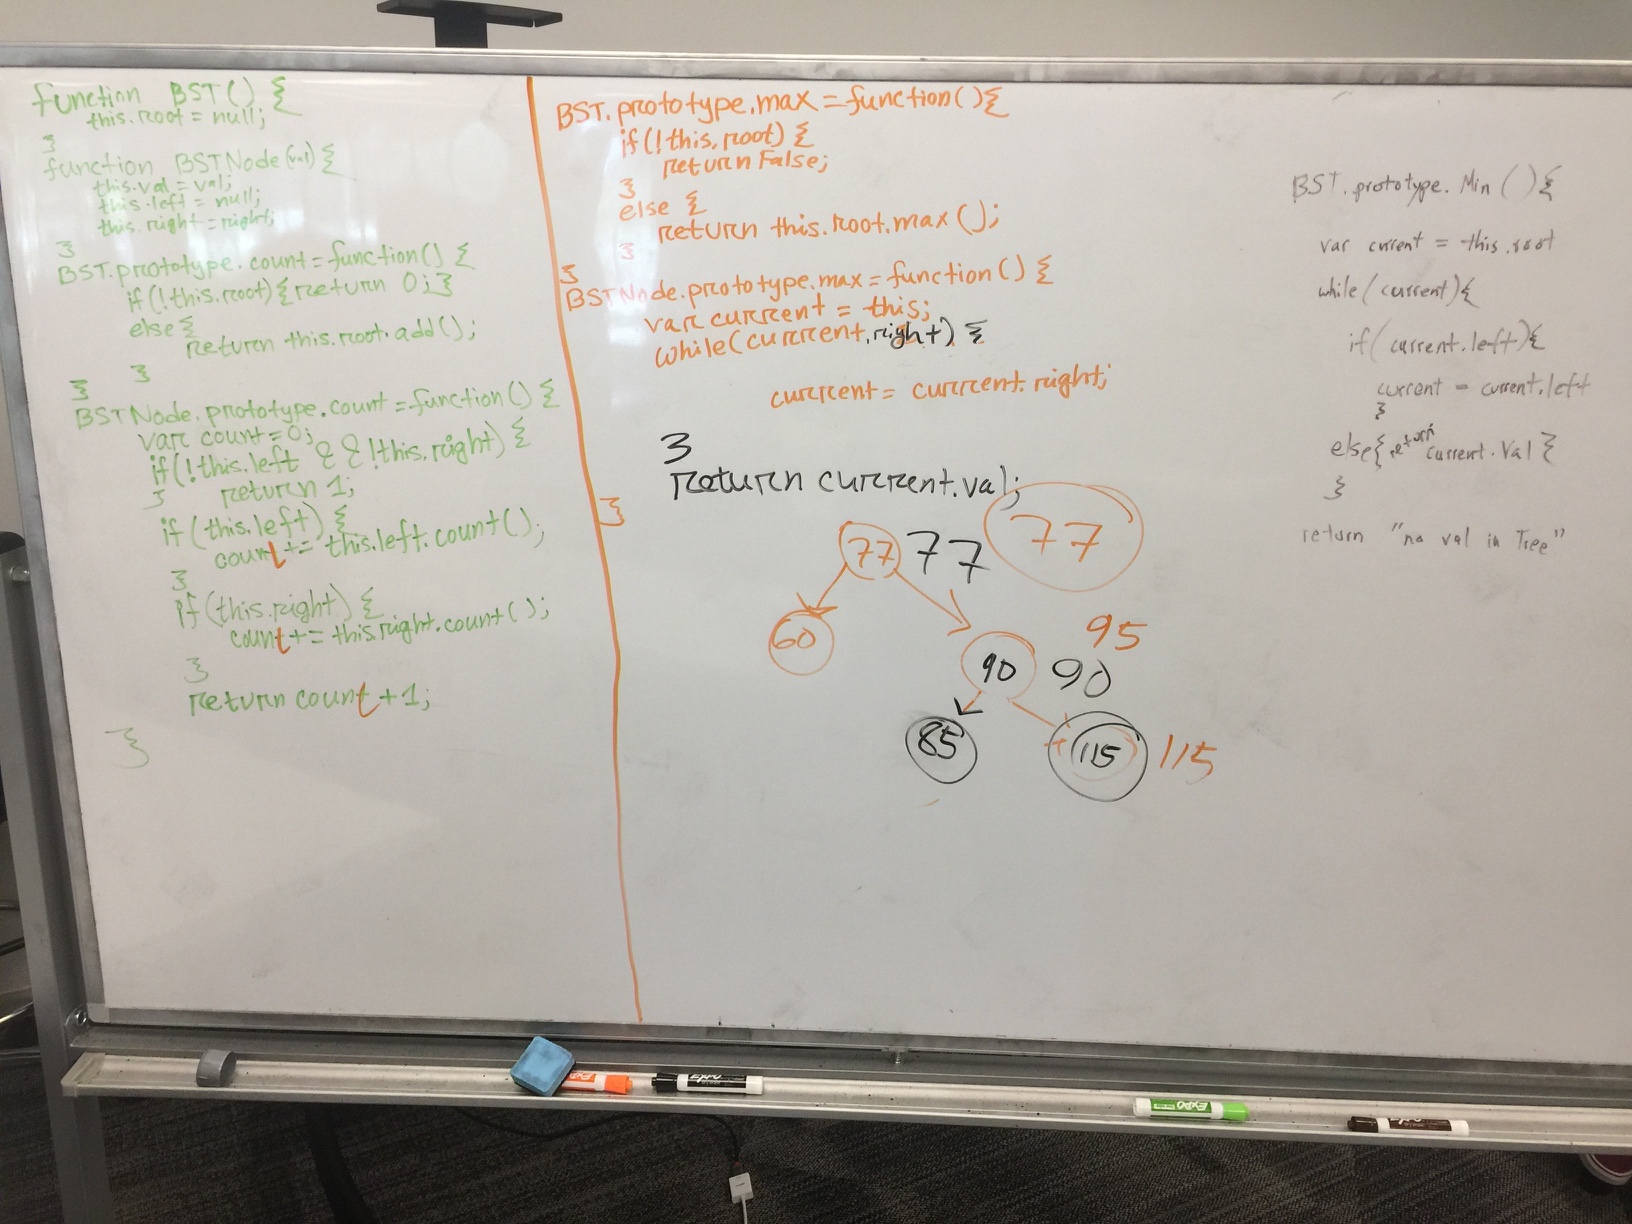 function BST() {
this.root = null;
}
function BSTNode(val) {
this.val = val;
this.left = null;
this.right = right;
}
BST.prototype.count = function() {
if(!this.root) { return 0; }
else {
return this.root.add();
}
}
BSTNode.prototype.count = function() {
var count = 0;
if(!this.left && !this.right) {
return 1;
}
if (this.left) {
count += this.left.count();
}
if (this.right) {
count += this.right.count();
}
return count + 1;
}
BST.prototype.max = function() {
if(!this.root) {
return False;
}
else {
return this.root.max();
}
}
BSTNode.prototype.max = function() {
var current = this;
while(current.right) {
current = current.right;
}
return current.val;
}
77 77 77
60
95
90 90
85
115 115
BST.prototype.Min () {
var current = this.root
while(current){
if(current.left){
current = current.left
}
else{ return current.Val }
}
return "no val in Tree"
EXPO
EXPO
EXPO
EXPO